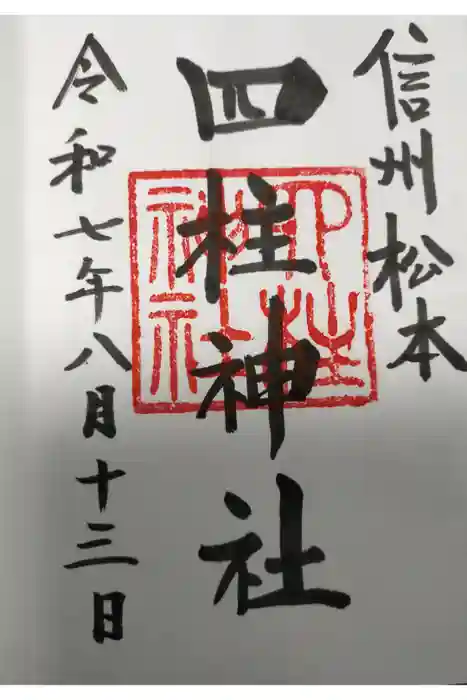 信州松本
四柱神社
四柱神社
令和七年八月十三日